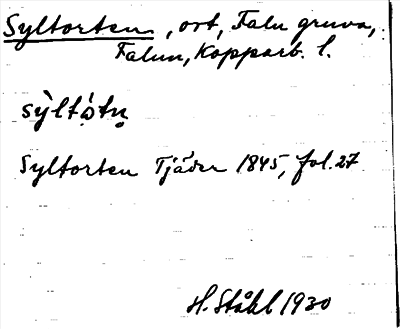 Syltorten, ort, Falu gruva,
Falun, Kopparb. l.
sỳltó̤tṇ
Syltorten Tjäder 1845, fol. 27
H. Ståhl 1930